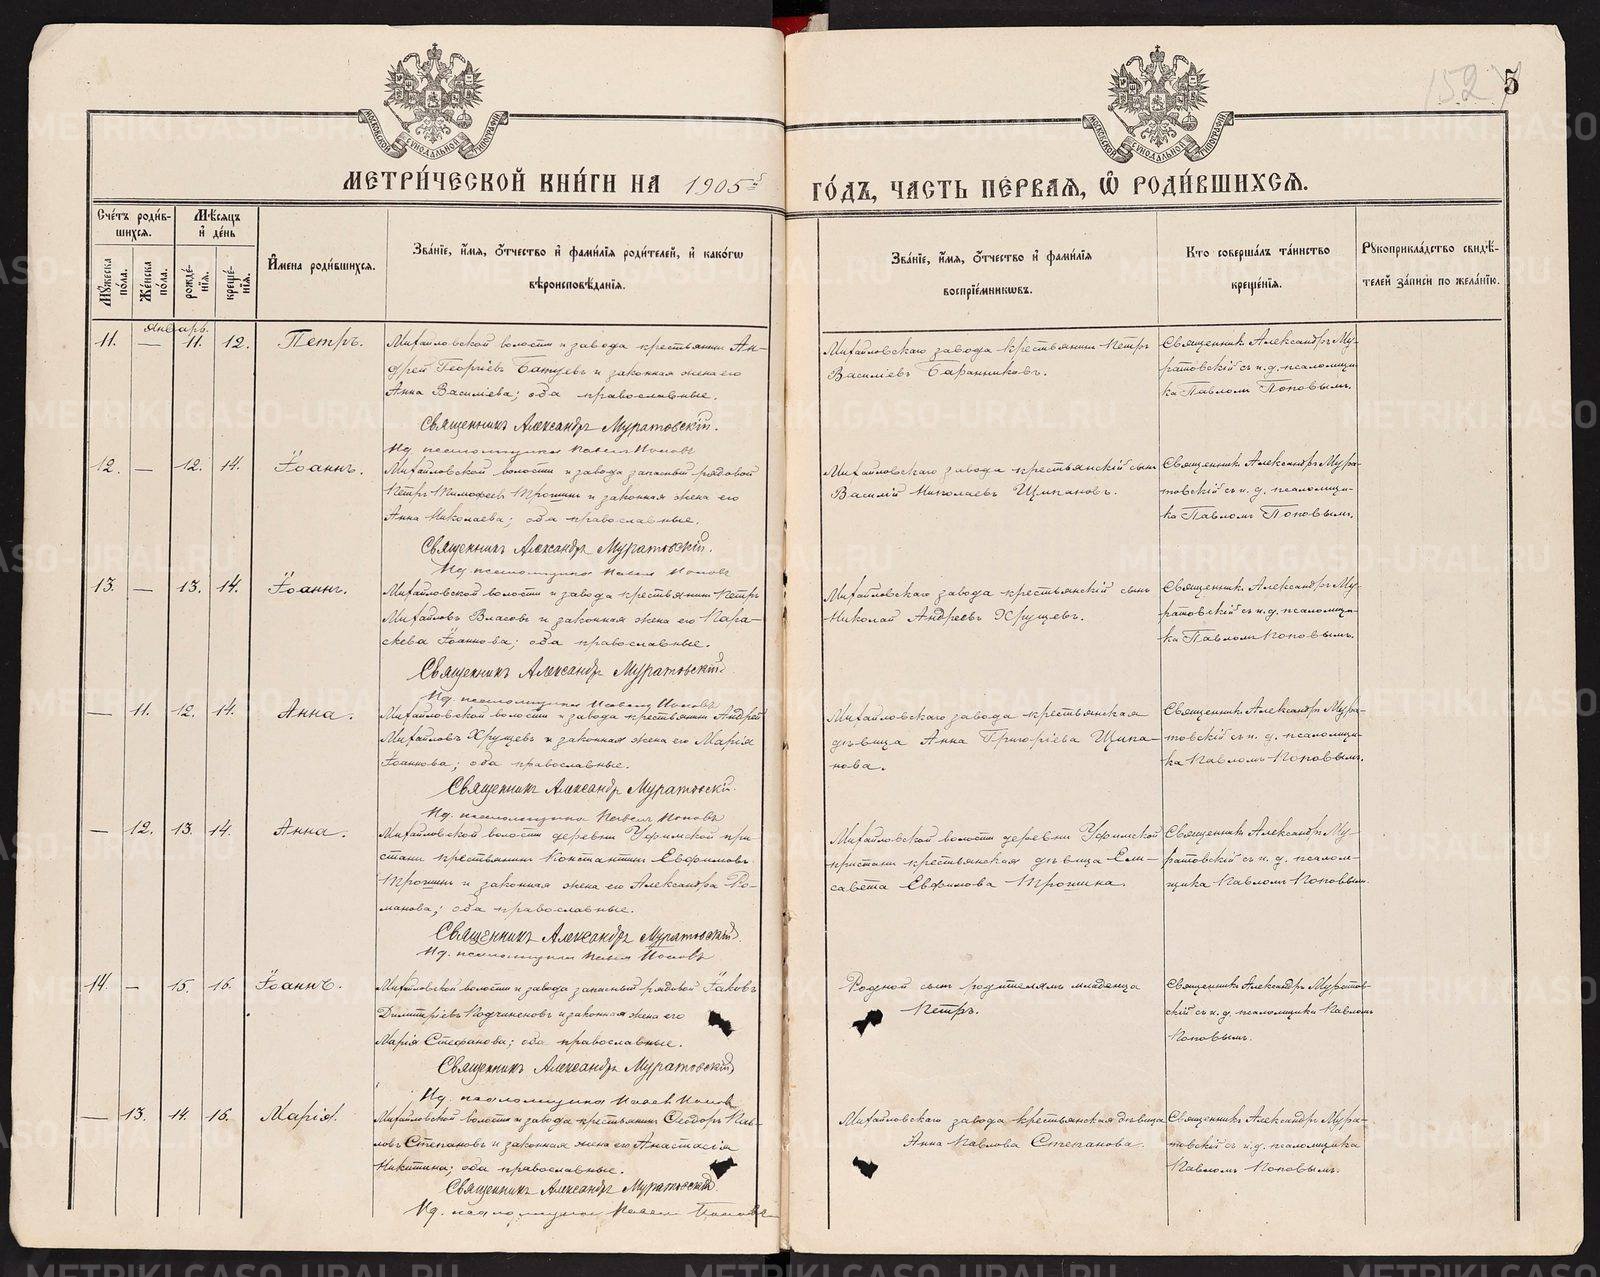 152
5
МОСКОВСКОЙ СѴНОДАЛЬНОЙ ТИПОГРАФІИ
МОСКОВСКОЙ СѴНОДАЛЬНОЙ ТИПОГРАФІИ
МЕТРИ́ЧЕСКОЙ КНИ́ГИ НА 1905 г.
ГО́ДЪ, ЧАСТЬ ПЕ́РВАѦ, Ѡ҆ РОДИ́ВШИХСѦ.
Сче́тъ роди́в-
шихся.
Мѣ́сяцъ
и҆ де́нь
Мꙋ́жеска по́ла.
Же́нска по́ла.
рожде́-нія.
креще́-нія.
И҆мена̀ роди́вшихся.
Зва́ніе, и҆́мя, ѻ҆́тчество и҆ фами́лія роди́телей, и҆ како́гѡ
вѣроисповѣ́данія.
Зва́ніе, и҆́мя, ѻ҆́тчество и҆ фами́лія
воспріе́мникѡвъ.
Кто соверша́лъ та́инство
креще́нія.
Рꙋкоприкла́дство свидѣ́-
телей за́писи по жела́нію.
Январь.
11. — 11. 12. Петръ.
Михайловской волости и завода крестьянинъ Ан-
дрей Георгіевъ Батуевъ и законная жена его
Анна Васильева; оба православные.
Священникъ Александръ Муратовскій.
Ид. псаломщика Павелъ Поповъ
Михайловскаго завода крестьянинъ Петръ
Василіевъ Баранниковъ.
Священникъ Александръ Му-
ратовскій съ и. д. псаломщи-
ка Павломъ Поповымъ.
12. — 12. 14. Іоаннъ.
Михайловской волости и завода запасный рядовой
Петръ Тимофеевъ Трошинъ и законная жена его
Анна Николаева; оба православные.
Священникъ Александръ Муратовскій.
Ид. псаломщика Павелъ Поповъ
Михайловскаго завода крестьянскій сынъ
Василій Николаевъ Щипановъ.
Священникъ Александръ Мура-
товскій съ и. д. псаломщи-
ка Павломъ Поповымъ.
13. — 13. 14. Іоаннъ.
Михайловской волости и завода крестьянинъ Петръ
Михайловъ Власовъ и законная жена его Пара-
скева Іоаннова; оба православные.
Священникъ Александръ Муратовскій
Ид. псаломщика Павелъ Поповъ
Михайловскаго завода крестьянскій сынъ
Николай Андреевъ Хрущевъ.
Священникъ Александръ Му-
ратовскій съ и. д. псаломщи-
ка Павломъ Поповымъ.
— 11. 12. 14. Анна.
Михайловской волости и завода крестьянинъ Андрей
Михайловъ Хрущевъ и законная жена его Марія
Іоаннова; оба православные.
Священникъ Александръ Муратовскій.
Ид. псаломщика Павелъ Поповъ
Михайловскаго завода крестьянская
дѣвица Анна Григоріева Щипа-
нова.
Священникъ Александръ Мура-
товскій съ и. д. псаломщи-
ка Павломъ Поповымъ.
— 12. 13. 14. Анна.
Михайловской волости деревни Уфимской при-
стани крестьянинъ Константинъ Евфимовъ
Трошинъ и законная жена его Александра Ро-
манова; оба православные.
Священникъ Александръ Муратовскій.
Ид. псаломщика Павелъ Поповъ
Михайловской волости деревни Уфимской
пристани крестьянская дѣвица Ели-
савета Евфимова Трошина.
Священникъ Александръ Му-
ратовскій съ и. д. псалом-
щика Павломъ Поповымъ.
14. — 15. 16. Іоаннъ.
Михайловской волости и завода запасный рядовой Іаковъ
Димитріевъ Подчиненовъ и законная жена его
Марія Стефанова; оба православные.
Священникъ Александръ Муратовскій
Ид. псаломщика Павелъ Поповъ
Родной сынъ родителямъ младенца
Петръ.
Священникъ Александръ Муратов-
скій съ и. д. псаломщика Павломъ
Поповымъ.
— 13. 14. 16. Марія.
Михайловской волости и завода крестьянинъ Ѳеодоръ Пав-
ловъ Степановъ и законная жена его Анастасія
Никитина; оба православные.
Священникъ Александръ Муратовскій.
Ид. псаломщика Павелъ Поповъ
Михайловскаго завода крестьянская дѣвица
Анна Павлова Степанова.
Священникъ Александръ Мура-
товскій съ и. д. псаломщика
Павломъ Поповымъ.
METRIKI.GASO-URAL.RU